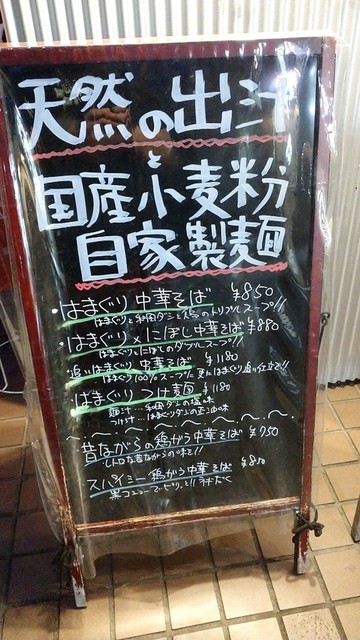 天然の出汁
と
国産小麦粉
自家製麺
・はまぐり中華そば ¥850
はまぐりと和風ダシと鶏のトリプルスープ!!
・はまぐり×にぼし中華そば ¥880
はまぐりとにぼしのダブルスープ!!
・追いはまぐり中華そば ¥1180
はまぐり100%スープに更にはまぐり追い仕立て!!
・はまぐりつけ麺 ¥1180
麺汁…和風ダシの塩味
つけ汁…はまぐりダシの正油味
・昔ながらの鶏がら中華そば ¥750
レトロな昔ながらの味を!!
・スパイシー鶏がら中華そば ¥850
黒コショーで